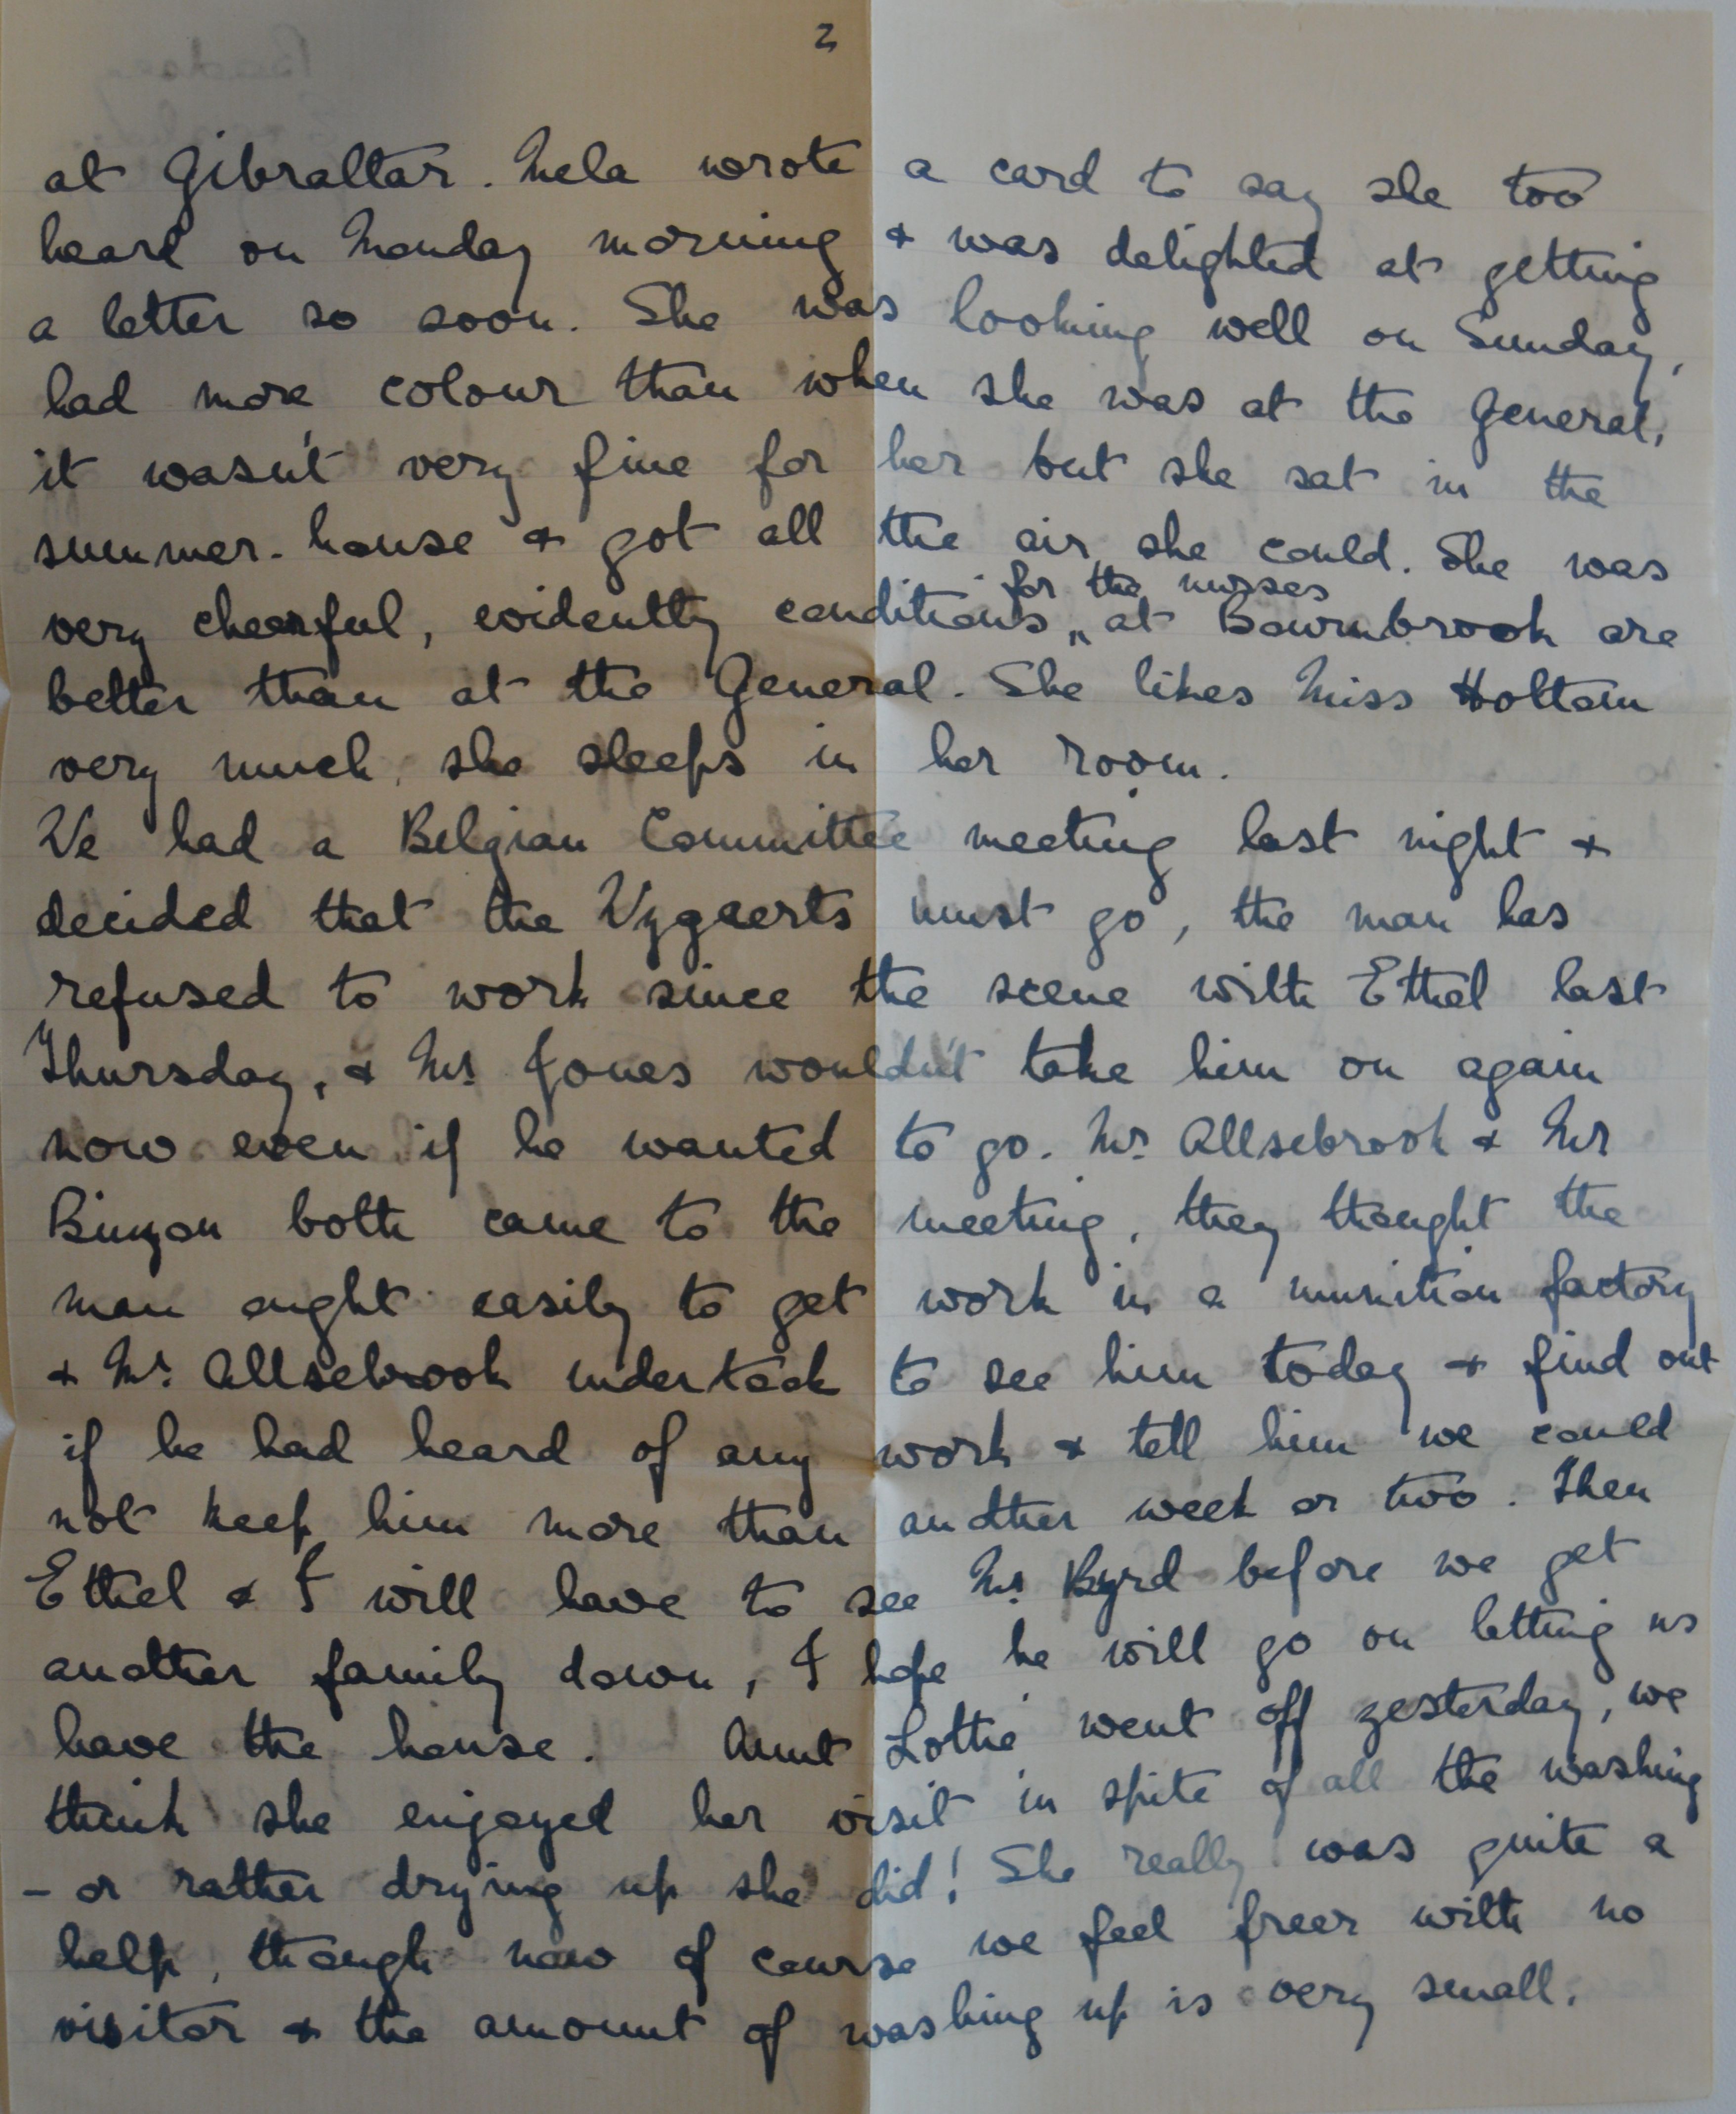 2
at Gibraltar. Mela wrote a card to say she too
heard on Monday morning & was delighted at getting
a letter so soon. She was looking well on Sunday,
had more colour than when she was at the General,
it wasn't very fine for her but she sat in the
summer-house & got all the air she could. She was
for the nurses
very cheerful, evidently conditions at Bournbrook are
better than at the General. She likes Miss Holtam
very much, she sleeps in her room.
We had a Belgian Committee meeting last night &
decided that the Vygaerts must go, the man has
refused to work since the scene with Ethel last
Thursday, & Mr. Jones wouldn't take him on again
now even if he wanted to go. Mr. Allsebrook & Mr
Binyon both came to the meeting, they thought the
man ought easily to get work in a munition factory
& Mr. Allsebrook undertook to see him today & find out
if he had heard of any work & tell him we could
not keep him more than another week or two. Then
Ethel & I will have to see Mr. Byrd before we get
another family down, I hope he will go on letting us
have the house. Aunt Lottie went off yesterday, we
think she enjoyed her visit in spite of all the washing
- or rather drying up she did! She really was quite a
help, though now of course we feel freer with no
visitor & the amount of washing up is very small.